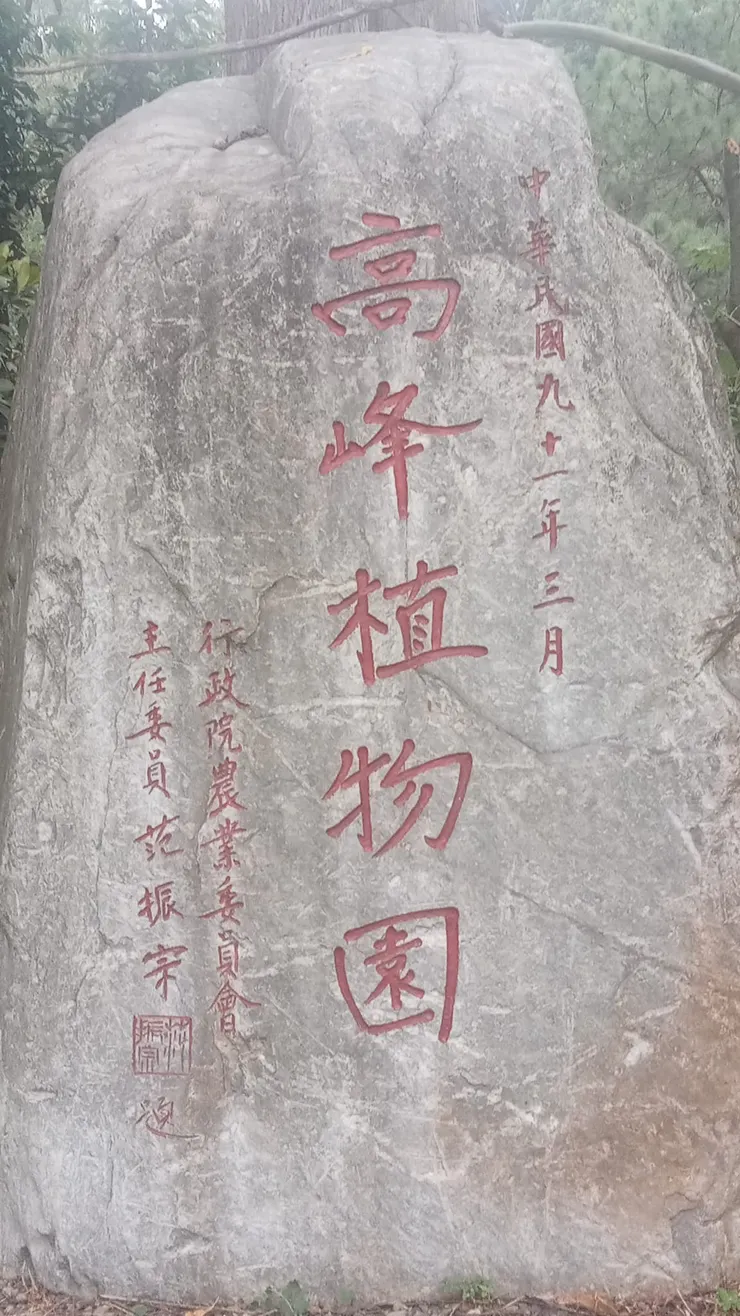 中華民國九十一年三月
高峰植物園
行政院農業委員會
主任委員范振宗
范振宗
題